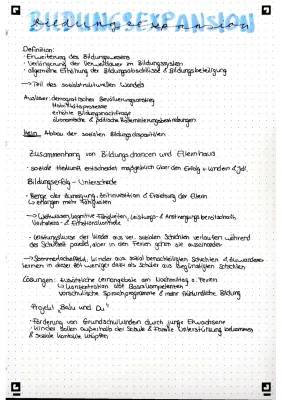 BILDUNGSEXPANSION
Bildungsexpansion
Definition:
· Erweiterung des Bildungswesens
· Verlängerung der Verweildauer im Bildungssystem
· allgemeine Erhöhung der Bildungsabschlüsse & Bildungsbeteiligung
→ Teil des sozialstrukturellen Wandels
Auslöser: demografischer Bevölkerungsanstieg
Mobilitätsprozesse
erhöhte Bildungsnachfrage
ökonomische & politische
Kein Abbau der sozialen Bildungsdisparitäten
Zusammenhang von Bildungschancen und Elternhaus
· soziale Herkunft entscheidet maßgeblich über den Erfolg v. Kindern &
Bildungserfolg - Unterschiede
· Menge der Zuwendung, Zeitinvestition & Erziehung der Eltern
↳ erlangen mehr Fähigkeiten
→ kognitive Fähigkeiten, Leistungs- & Anstrengungsbereitschaft,
Verhaltens- & Emotionskontrolle
· Leistungskurve der Kinder aus ver. sozialen Schichten verlaufen während
der Schulzeit parallel, aber in den Ferien gehen sie auseinander
→ Sommerlocheffekt: Kinder aus sozial benachteiligten Schichten &
lernen in dieser Zeit weniger dazu als Schüler aus begünstigten Schichten
Lösungen: zusätzliche Lernangebote am Nachmittag o. Ferien
↳ Konzentration auf Basiskompetenzen
vorschulische Sprachprogramme & mehr frühkindliche Bildung
Projekt „Balu und Du"
· Förderung von Grundschulkindern durch junge Erwachsene
· Kinder sollen außerhalb der Schule & Familie Unterstützung bekommen
& soziale Kontakte knüpfen